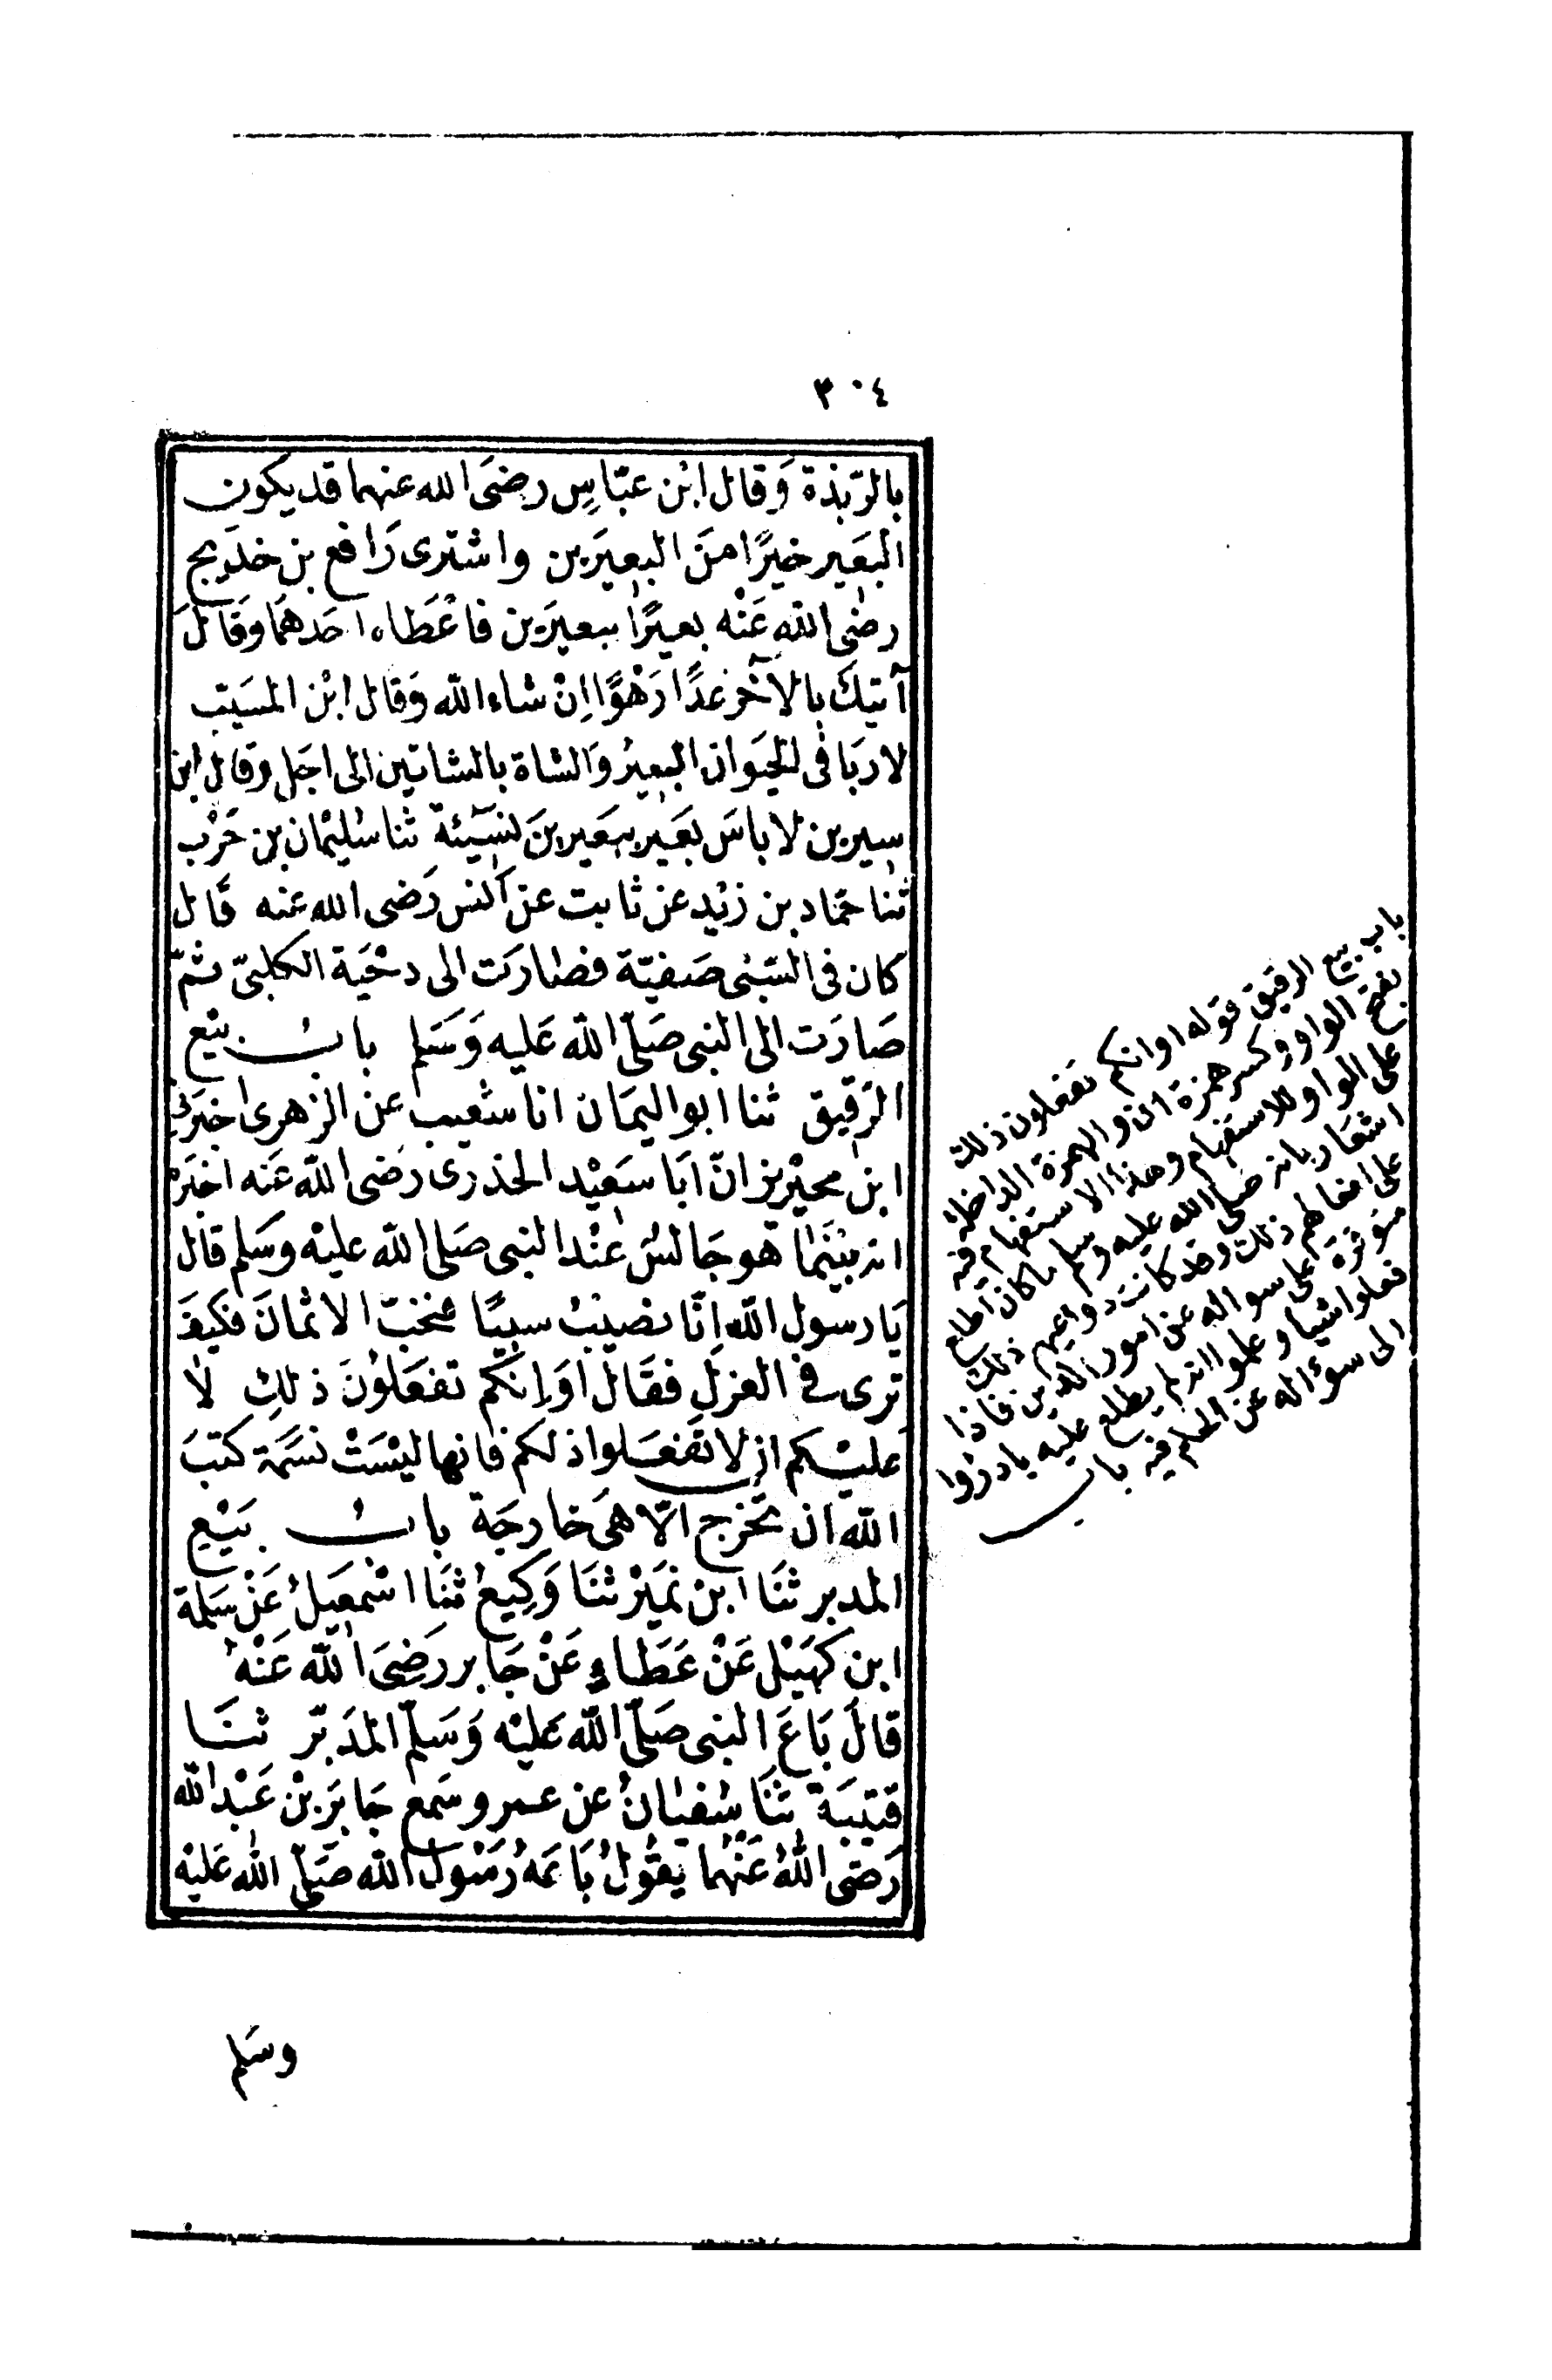 ٣٠٤
بالرّبذة وَقال ابْن عبّاسٍ رضىَ الله عنهما قد يكون
البَعير خيرًا منَ البعيرَين واشترى رَافع بن خديج
رضى الله عَنْه بعيرًا ببعيرَين فاعْطَاه احَدهمَا وَقَالَ
آتيك بالآخر غدًا رَهْوًا اِنْ شاء الله وَقال ابْن المسَيّب
لا ربَا فى الحيَوان البعيرُ وَالشاة بالشاتين الى اجَل وَقال ابن
سيرين لا باسَ بَعيرٍ ببعَيرينَ نسَيئة ثنا سُليْمان بن حَرْب
ثنا حمّاد بن زيْد عن ثابت عن انس رَضى الله عنه قال
كان فى السّبْى صَفيّة فصَارَت الى دحْيَة الكلبىّ ثمّ
صَارَت الى النبى صَلّى الله عَليه وَسَلم بابُ بيْع
الرّقيق ثنا ابو اليمَان انا شعَيب عن الزهرى اخبَرنى
ابن محيْريز انّ ابَا سَعيْد الخدرى رَضى الله عَنه اخبَرَهُ
انه بيْنَمَا هو جَالسٌ عنْد النبى صَلى الله عليْه وسَلم قال
يَا رسول الله اِنّا نصيْبُ سبيًا فنحبّ الاثمانَ فكيفَ
ترى فى العزلِ فقَال اوَ اِنكم تفعَلوُنَ ذلكِ لا
عَليْكم ان لا تفعَلوا ذلكم فانها ليْسَتْ نسَمَة كتبَ
الله ان تخرج الّا هىَ خارجَة بابُ بَيْعِ
المدبر ثنَا ابن نميْر ثنَا وَكِيعٌ ثنَا اسْمعيلُ عَنْ سَلمة
ابن كهَيْل عَنْ عَطاءٍ عَنْ جَابر رَضِىَ الله عَنْهُ
قالَ بَاعَ النبى صَلّى الله عَليْه وَسَلّم المدَبّر ثنَا
قتيبَة ثنَا سُفيَانُ عن عمرو سَمِعَ جَابرَ بْن عَبْد الله
رَضى اللهُ عَنْهُما يقُولُ بَاعَهُ رَسُول الله صَلّى الله عَليْه
وسَلم
باب بيع الرقيق قوله او انكم تفعلون ذلك
بفتح الواو وكسر همزة ان والهمزة الداخلة
على الواو للاستفهام وهذا الاستفهام فيه
اشعار بانه صلى الله عليه وسلم ما كان اطلع
على افعالهم ذلك وقد كانت دواعيهم
متوفرة على سواله عن امور الدين فاذا
فعلوا شيا وعلموا انه لم يطلع عليه بادروا
الى سوءاله عن الحكم فيه باب